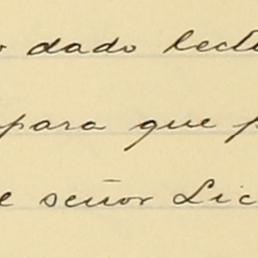 o dado lectu
para que p
e señor Lic